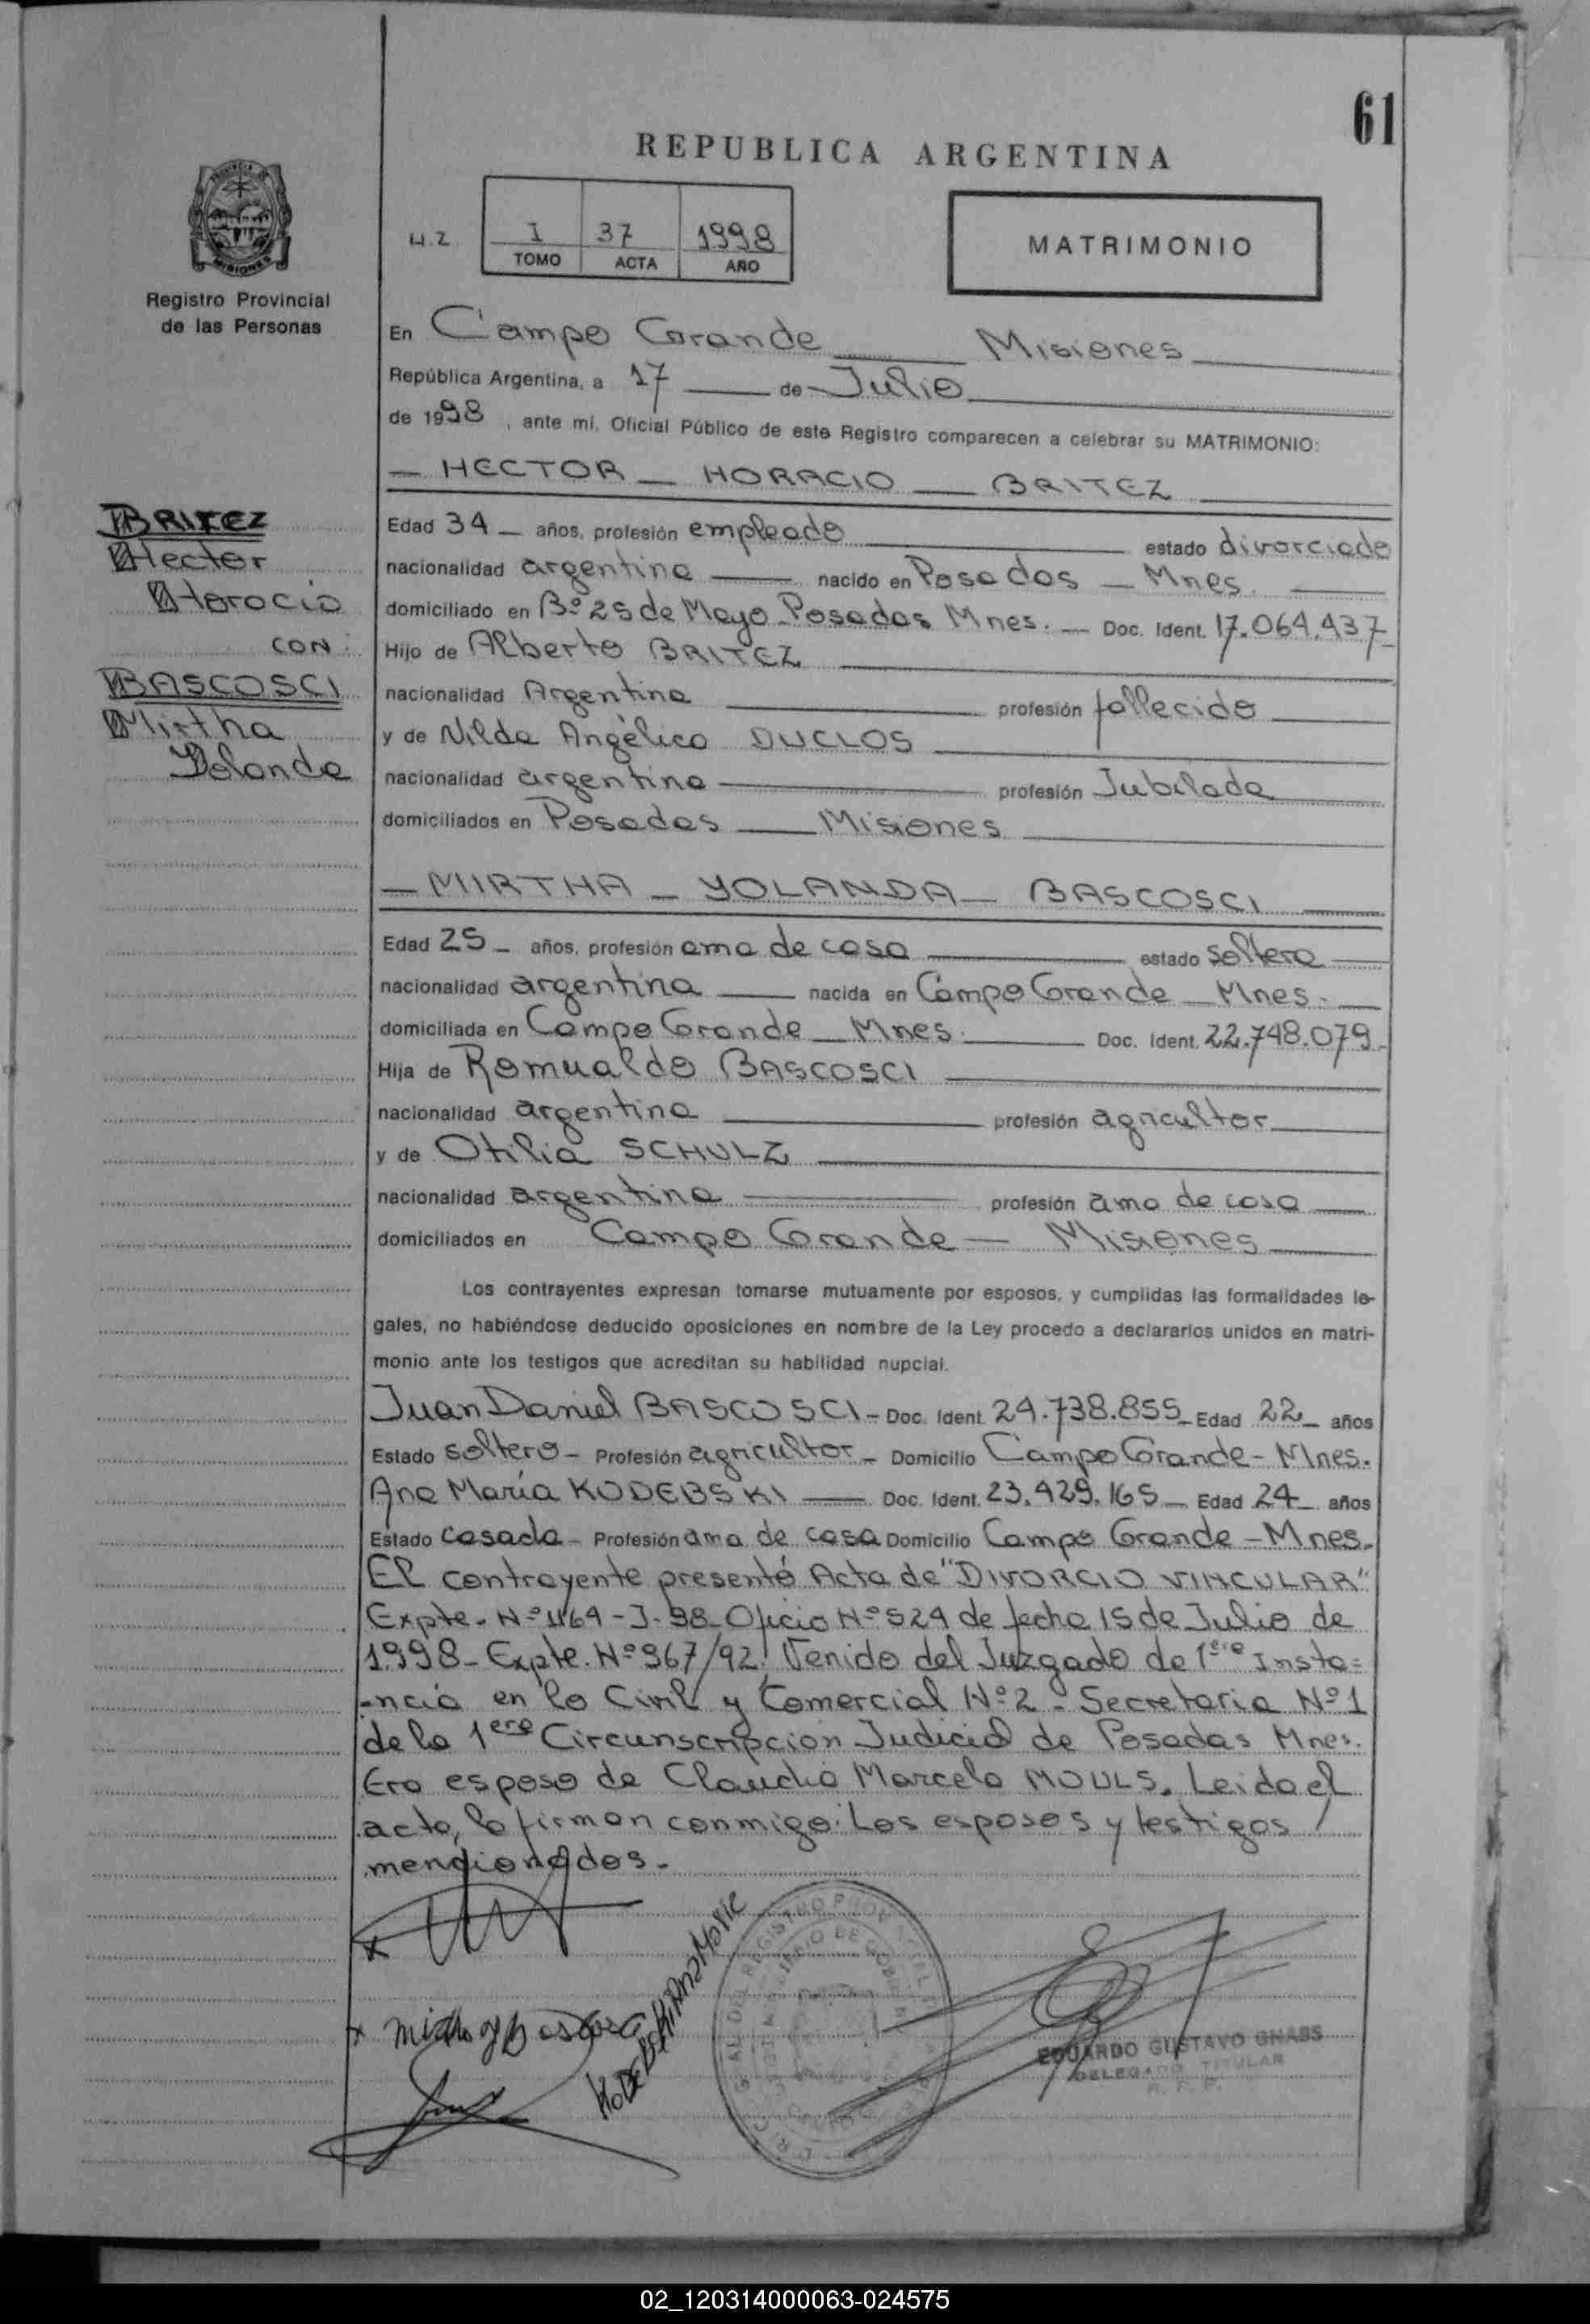 61
REPUBLICA ARGENTINA
H.Z. I 37 1998
TOMO ACTA AÑO
MATRIMONIO
MISIONES
Registro Provincial
de las Personas
BRITEZ
Hector
Horacio
CON:
BASCOSCI
Mirtha
Yolanda
En Campo Grande Misiones
República Argentina, a 17 de Julio
de 1998, ante mí, Oficial Público de este Registro comparecen a celebrar su MATRIMONIO:
— HECTOR — HORACIO — BRITEZ
Edad 34 — años, profesión empleado estado divorciado
nacionalidad argentina — nacido en Posadas — Mnes.
domiciliado en Bº 25 de Mayo Posadas Mnes. — Doc. Ident. 17.064.437
Hijo de Alberto BRITEZ
nacionalidad Argentina profesión fallecido
y de Nilda Angélica DUCLOS
nacionalidad argentina profesión Jubilada
domiciliados en Posadas — Misiones
— MIRTHA — YOLANDA — BASCOSCI
Edad 25 — años, profesión ama de casa estado soltera
nacionalidad argentina — nacida en Campo Grande — Mnes.
domiciliada en Campo Grande — Mnes. Doc. Ident. 22.748.079
Hija de Romualdo BASCOSCI
nacionalidad argentina profesión agricultor
y de Otilia SCHULZ
nacionalidad argentina profesión ama de casa
domiciliados en Campo Grande — Misiones
Los contrayentes expresan tomarse mutuamente por esposos, y cumplidas las formalidades le-
gales, no habiéndose deducido oposiciones en nombre de la Ley procedo a declararlos unidos en matri-
monio ante los testigos que acreditan su habilidad nupcial.
Juan Daniel BASCOSCI - Doc. Ident. 24.738.855 - Edad 22 - años
Estado soltero - Profesión agricultor - Domicilio Campo Grande - Mnes.
Ana María KODEBSKI — Doc. Ident. 23.429.165 - Edad 24 - años
Estado casada - Profesión ama de casa Domicilio Campo Grande - Mnes.
El contrayente presentó Acta de "DIVORCIO VINCULAR"
Expte. Nº 1164 - J-98- Oficio Nº 524 de fecha 15 de Julio de
1.998 - Expte. Nº 967/92. Venido del Juzgado de 1era Insta=
=ncia en lo Civil y Comercial Nº 2 - Secretaria Nº 1
de la 1era Circunscripción Judicial de Posadas Mnes.
Era esposo de Claudia Marcela MOULS. Leida el
acta, la firman conmigo: Los esposos y testigos
mencionados.-
KODEBSKI Ana Maria
EDUARDO GUSTAVO GHABS
DELEGADO TITULAR
R. P. P.
02_120314000063-024575